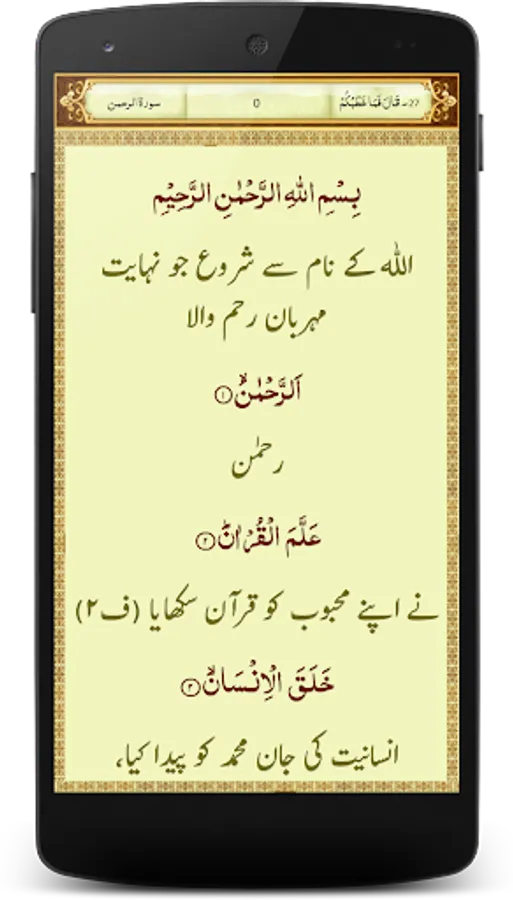 ۲۷۔ قَالَ فَمَا خَطْبُكُمْ 0 سورۃ الرحمن
بِسْمِ اللّٰهِ الرَّحْمٰنِ الرَّحِیْمِ
اللہ کے نام سے شروع جو نہایت
مہربان رحم والا
اَلرَّحْمٰنُۙ۝۱
رحمٰن
عَلَّمَ الْقُرْاٰنَؕ۝۲
نے اپنے محبوب کو قرآن سکھایا (ف۲)
خَلَقَ الْاِنْسَانَۙ۝۳
انسانیت کی جان محمد کو پیدا کیا،